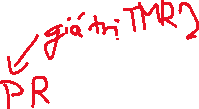 giá trị TMR2
PR